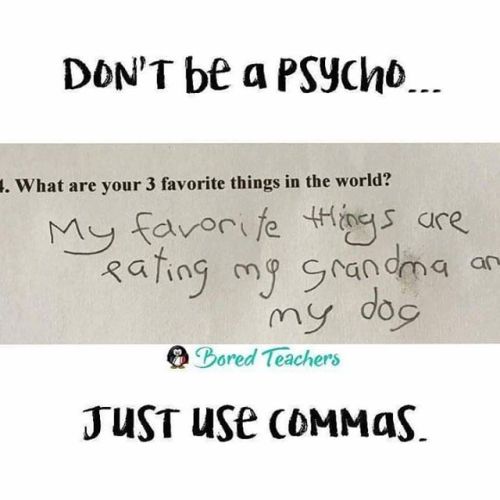 DON'T be a PSYCHO...
4. What are your 3 favorite things in the world?
My favorite things are
eating my grandma an
my dog
Bored Teachers
JUST USE COMMAS.